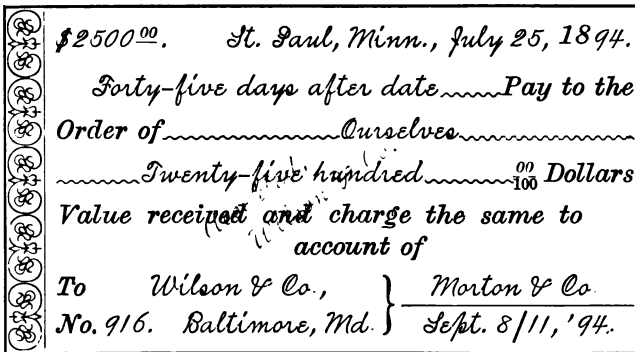 $2500 00. St. Paul, Minn., July 25, 1894.
Forty-five days after date Pay to the
Order of Ourselves
Twenty-five hundred 00/100 Dollars
Value received and charge the same to
account of
To Wilson & Co., } Morton & Co.
No. 916. Baltimore, Md. } Sept. 8/11, '94.